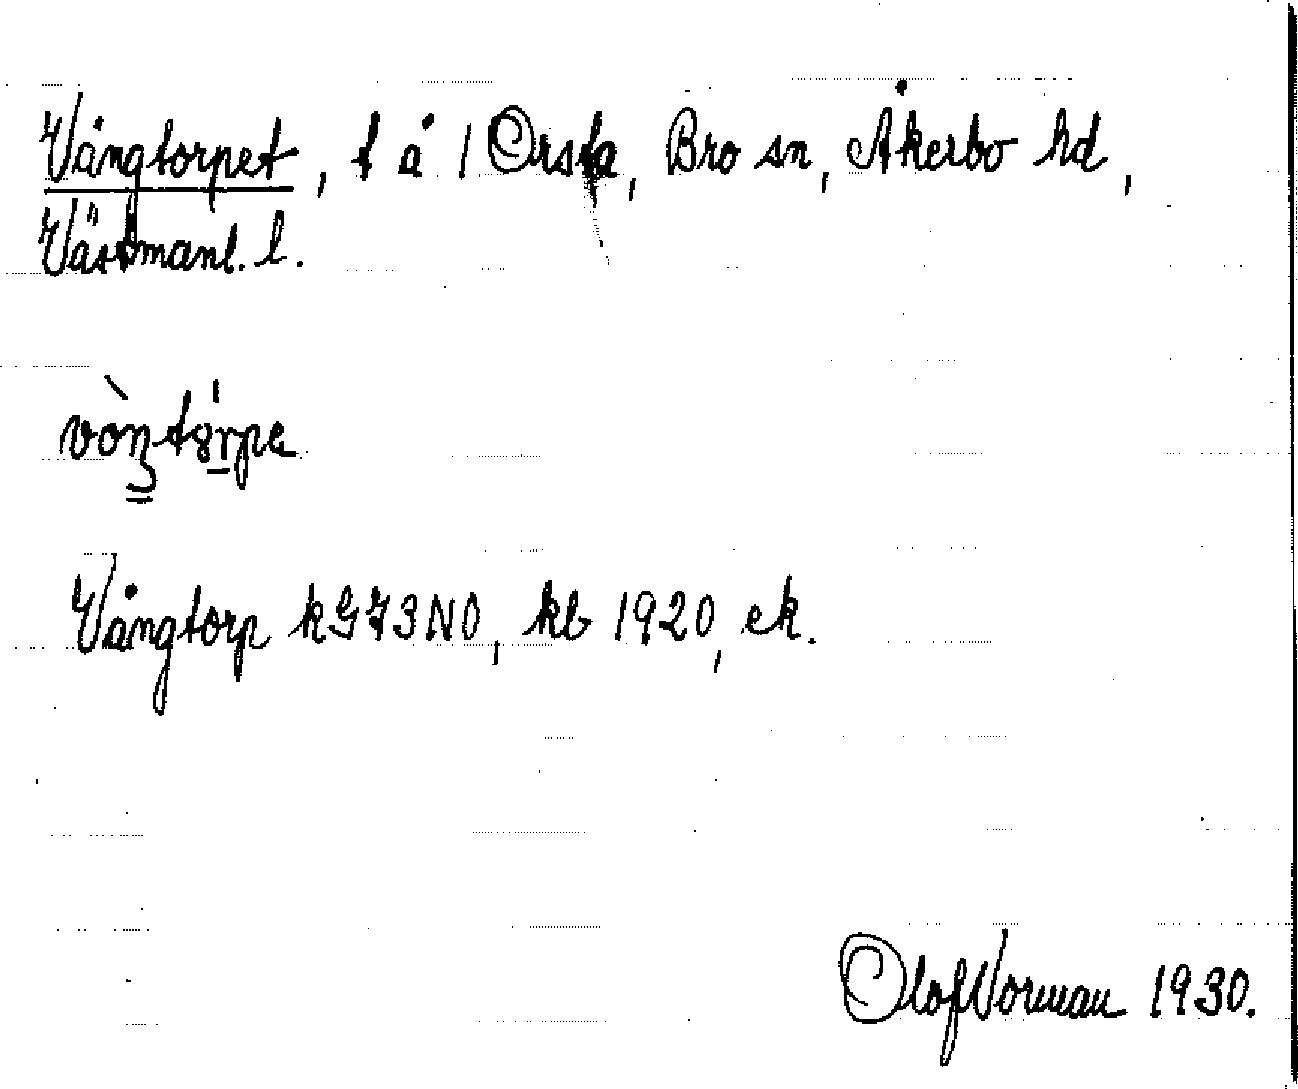 Vångtorpet, t å 1 Orsta, Bro sn, Åkerbo hd,
Västmanl. l.
Vångtorp kG73NO, kb 1920, ek.
Olof Norman 1930.